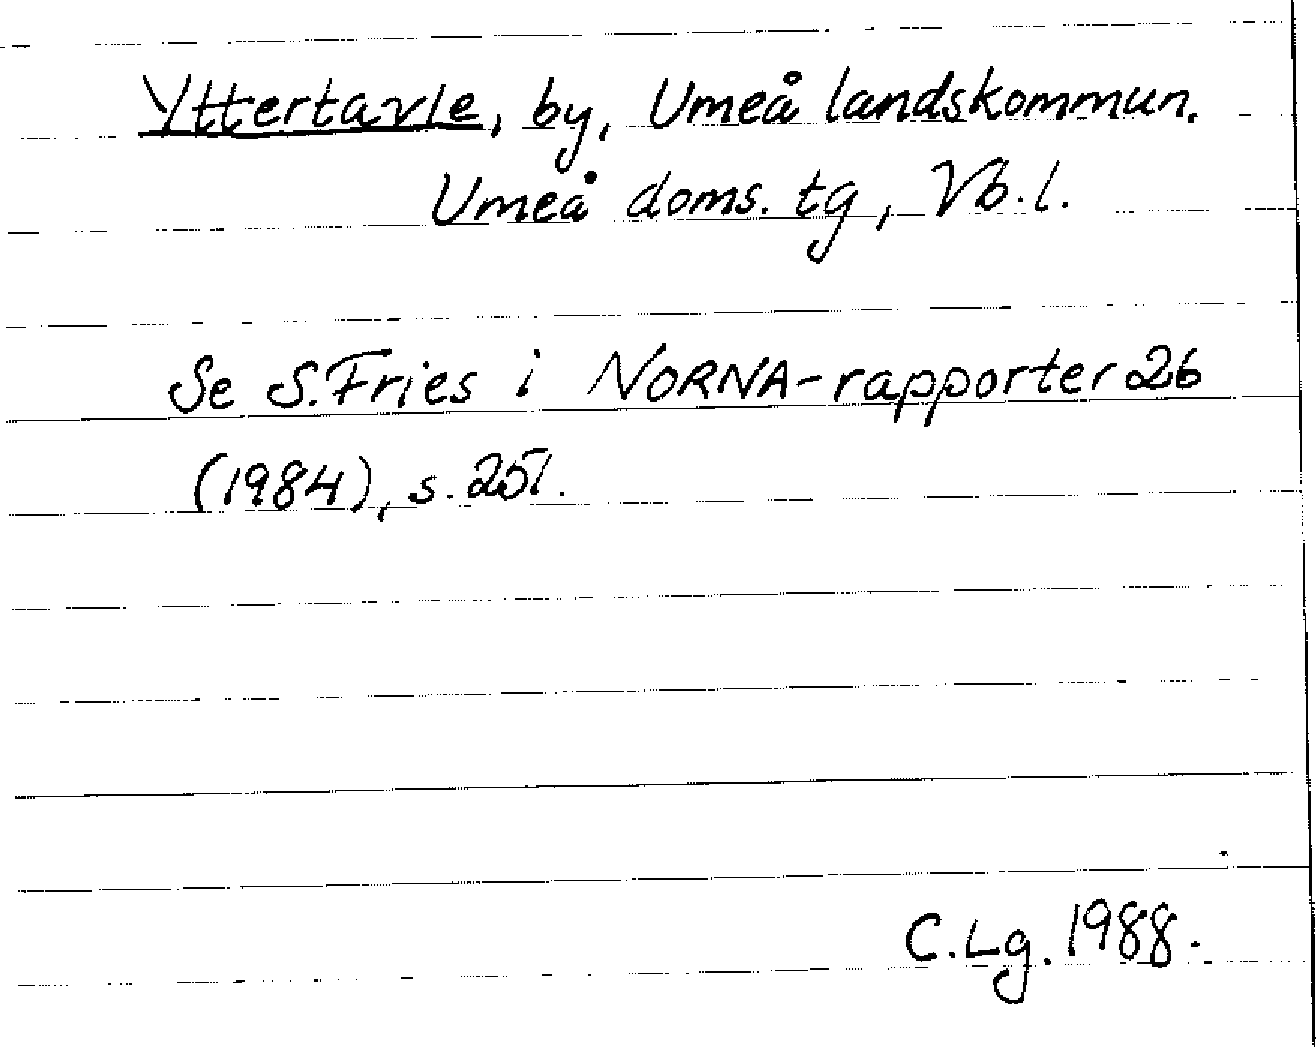 Yttertavle, by, Umeå landskommun.
Umeå doms. tg, Vb. l.
Se S. Fries i NORNA-rapporter 26
(1984), s. 251.
C. Lg. 1988.